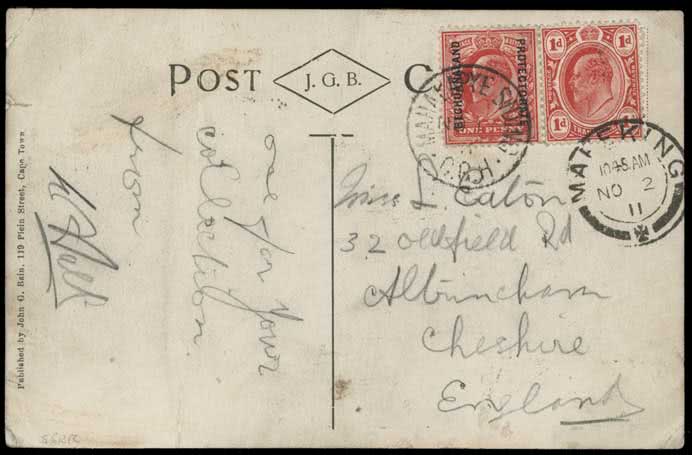 POST
J. G. B.
C
BECHUANALAND
PROTECTORATE
ONE PENNY
1d 1d
MAFEKING
10 45 AM
NO 2
11
one for your
collection.
from
Miss L. Eaton
32 Oldfield Rd
Altrincham
Cheshire
England
Published by John G. Bain, 119 Plein Street, Cape Town